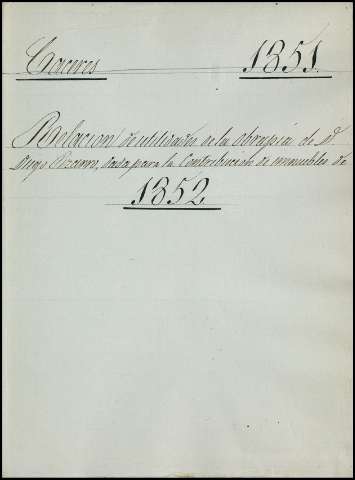 Caceres 1851.
Relacion de utilidades de la obrapia de D.
Diego Pizarro, dada para la Contribucion de inmuebles de
1852